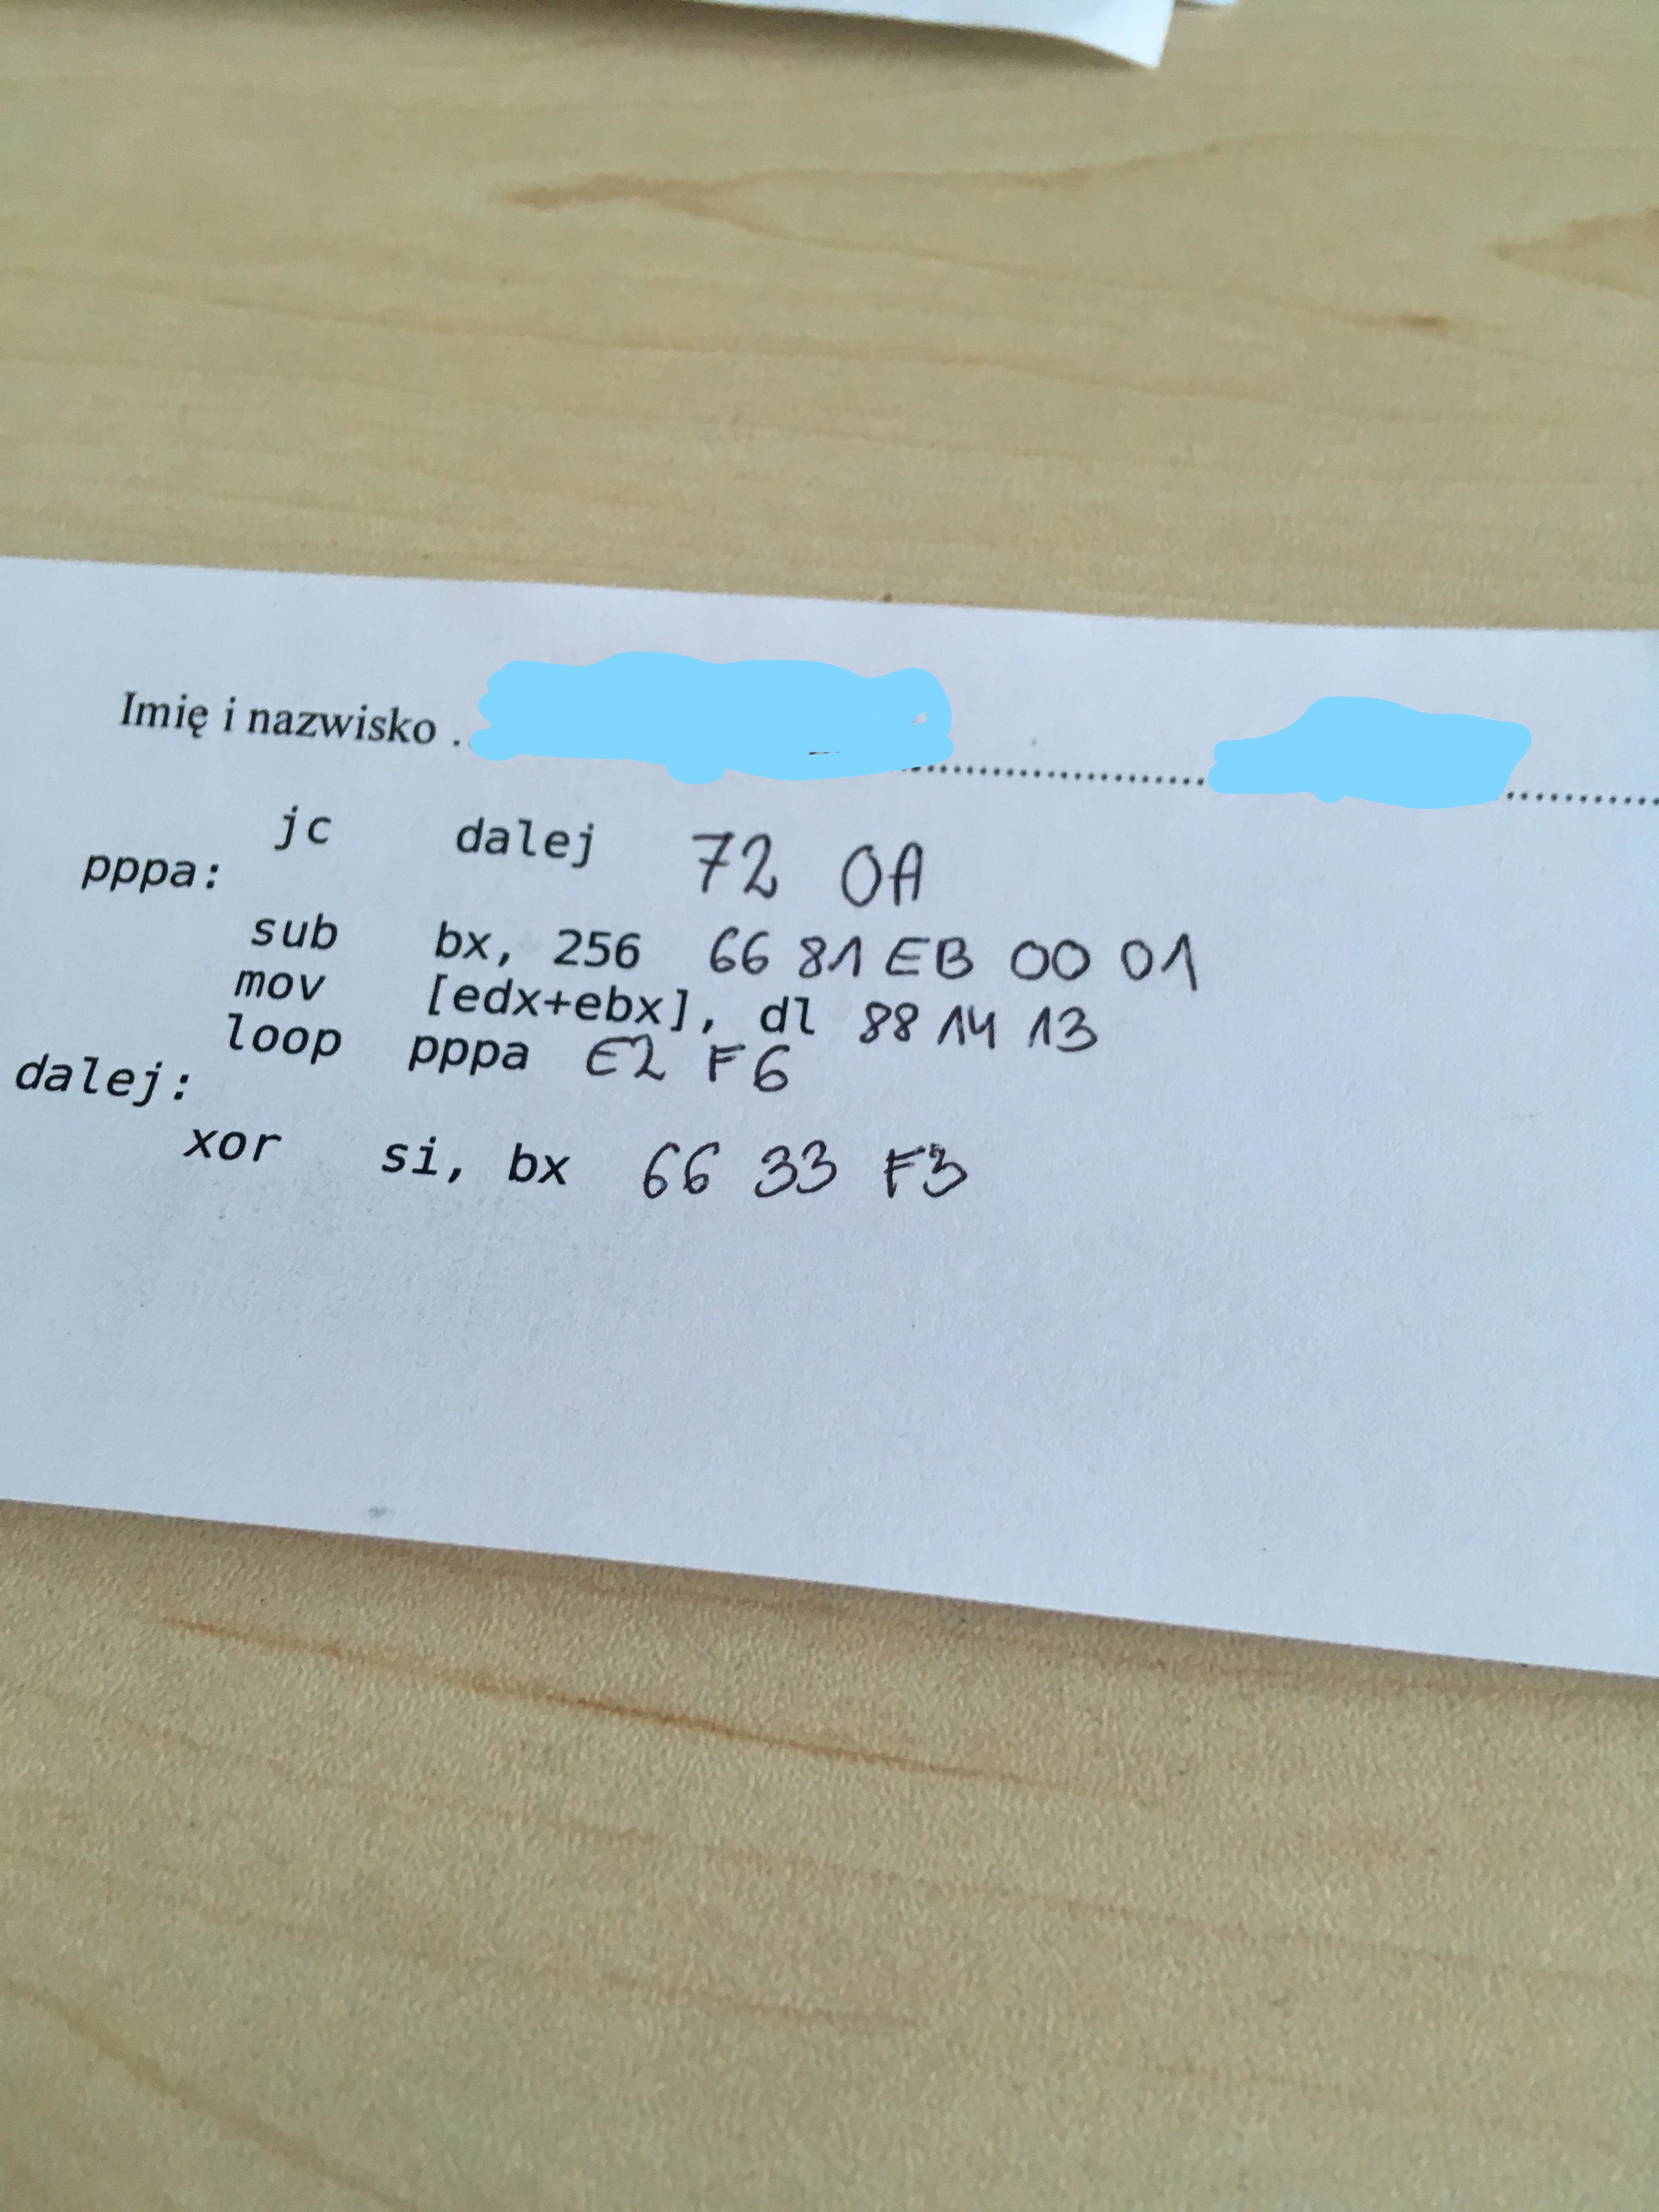 Imię i nazwisko
jc dalej 72 0A
pppa:
sub bx, 256 66 81 EB 00 01
mov [edx+ebx], dl 88 14 13
loop pppa E2 F6
dalej:
xor si, bx 66 33 F3